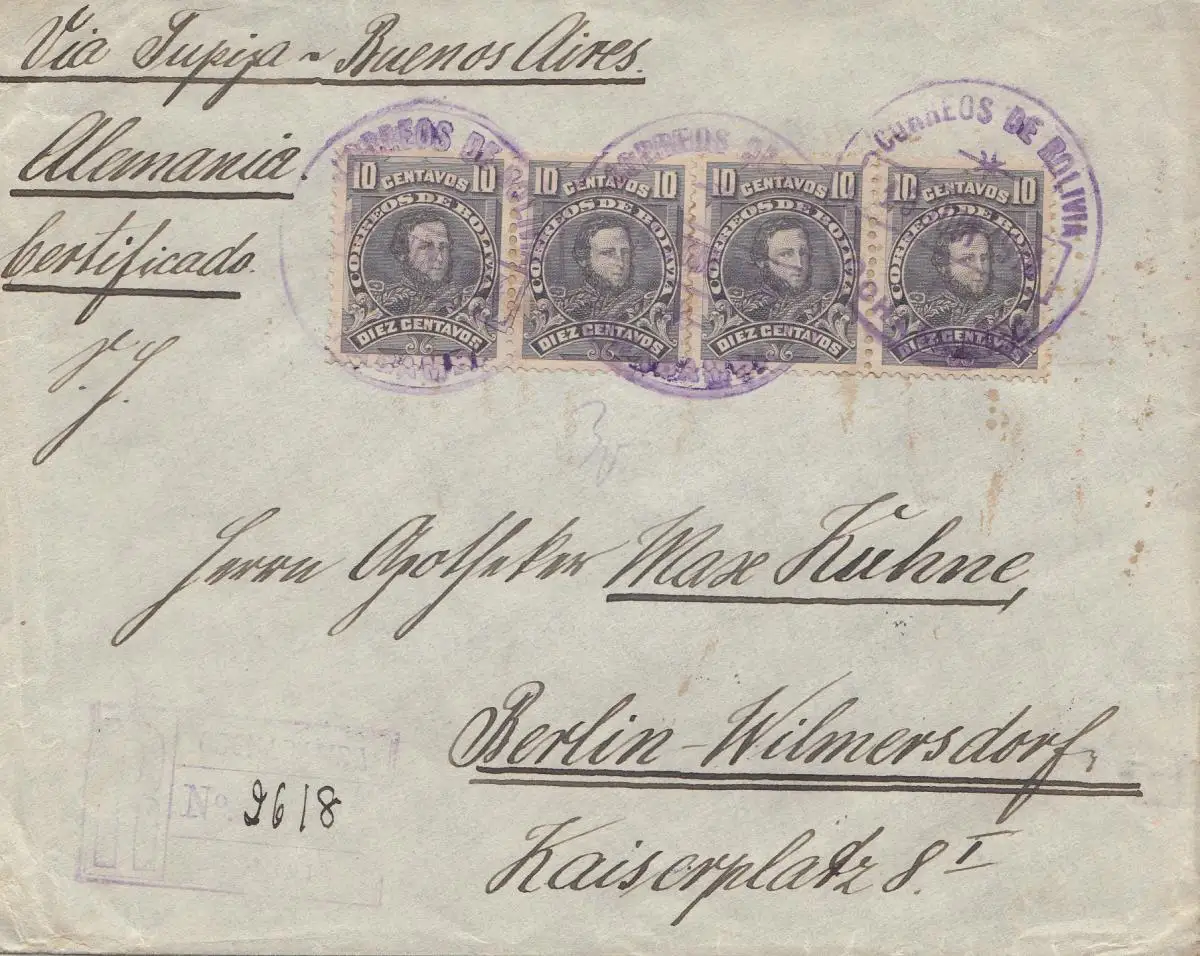 Via Tupiza - Buenos Aires.
Alemania.
Certificado.
CORREOS DE
CORREOS DE
CORREOS DE BOLIVIA
10 CENTAVOS 10
CORREOS DE BOLIVIA
DIEZ CENTAVOS
10 CENTAVOS 10
CORREOS DE BOLIVIA
DIEZ CENTAVOS
10 CENTAVOS 10
CORREOS DE BOLIVIA
DIEZ CENTAVOS
10 CENTAVOS 10
CORREOS DE BOLIVIA
DIEZ CENTAVOS
Herrn Apotheker Max Kuhne,
Berlin-Wilmersdorf.
Kaiserplatz 8. I
No. 9618